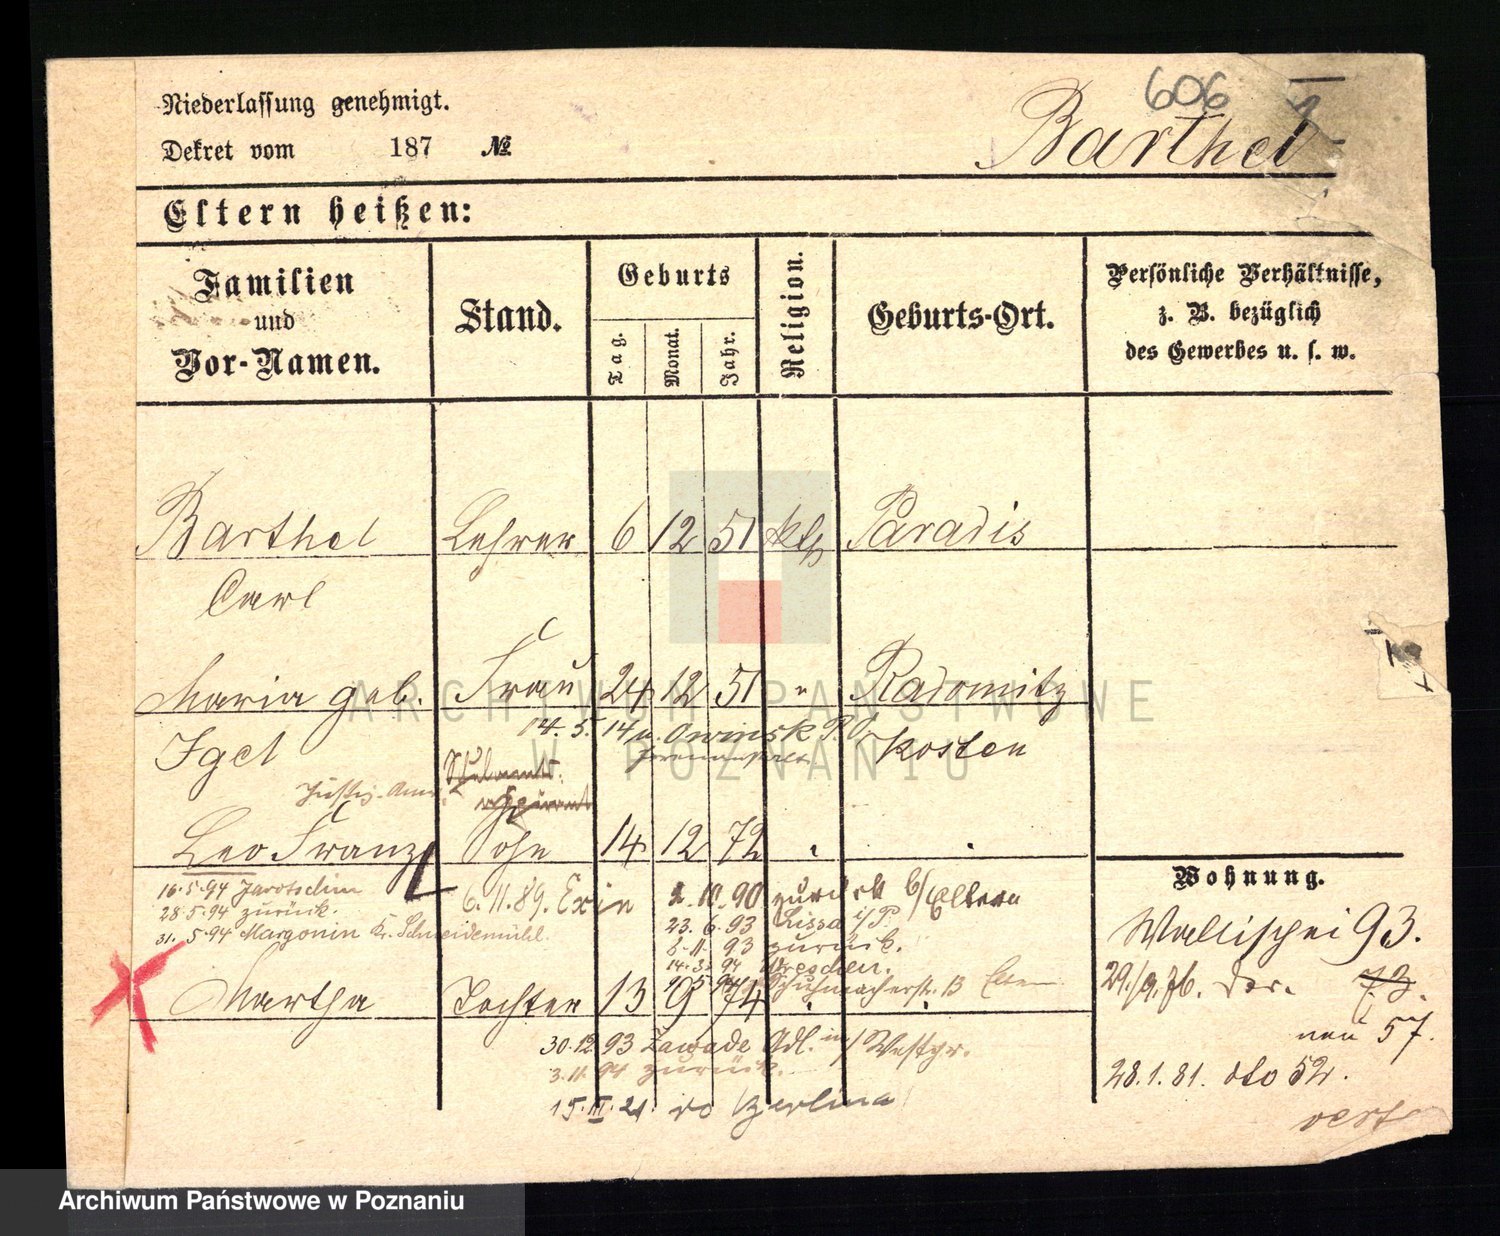 606
Niederlassung genehmigt.
Dekret vom 187 №
Barthel
Eltern heißen:
Familien und Vor-Namen.
Stand.
Geburts
Tag.
Monat.
Jahr.
Religion.
Geburts-Ort.
Persönliche Verhältnisse,
z. B. bezüglich
des Gewerbes u. s. w.
Barthel Lehrer 6 12 51 kth Paradis
Carl
Maria geb. Frau 24 12 51 " Radomitz
14. 5. 14 n. Owinsk P. O.
Igel Kosten
Leo Franz Sohn 14 12 72
16.5.94 Jarotschin
28.5.94 zurück.
31. 5.94 Margonin Kr. Schneidemühl.
6.11.89. Exin 2.10.90 zurück b/ Eltern
23. 6. 93 Lissa i/P.
8.11. 93 zurück.
14.3. 94 Wreschen.
Schuhmacherstr. 13
Martha Tochter 13 9 74
30.12.93 Zawade Gdl. in/ Westpr.
3.11.94 zurück.
15.III.21 Berlin
Wohnung.
Wallischei 93.
29./9.76. do. 73.
neu 57.
28.1.81. dto 52.
vert
ARCHIWUM PAŃSTWOWE
W POZNANIU
Archiwum Państwowe w Poznaniu